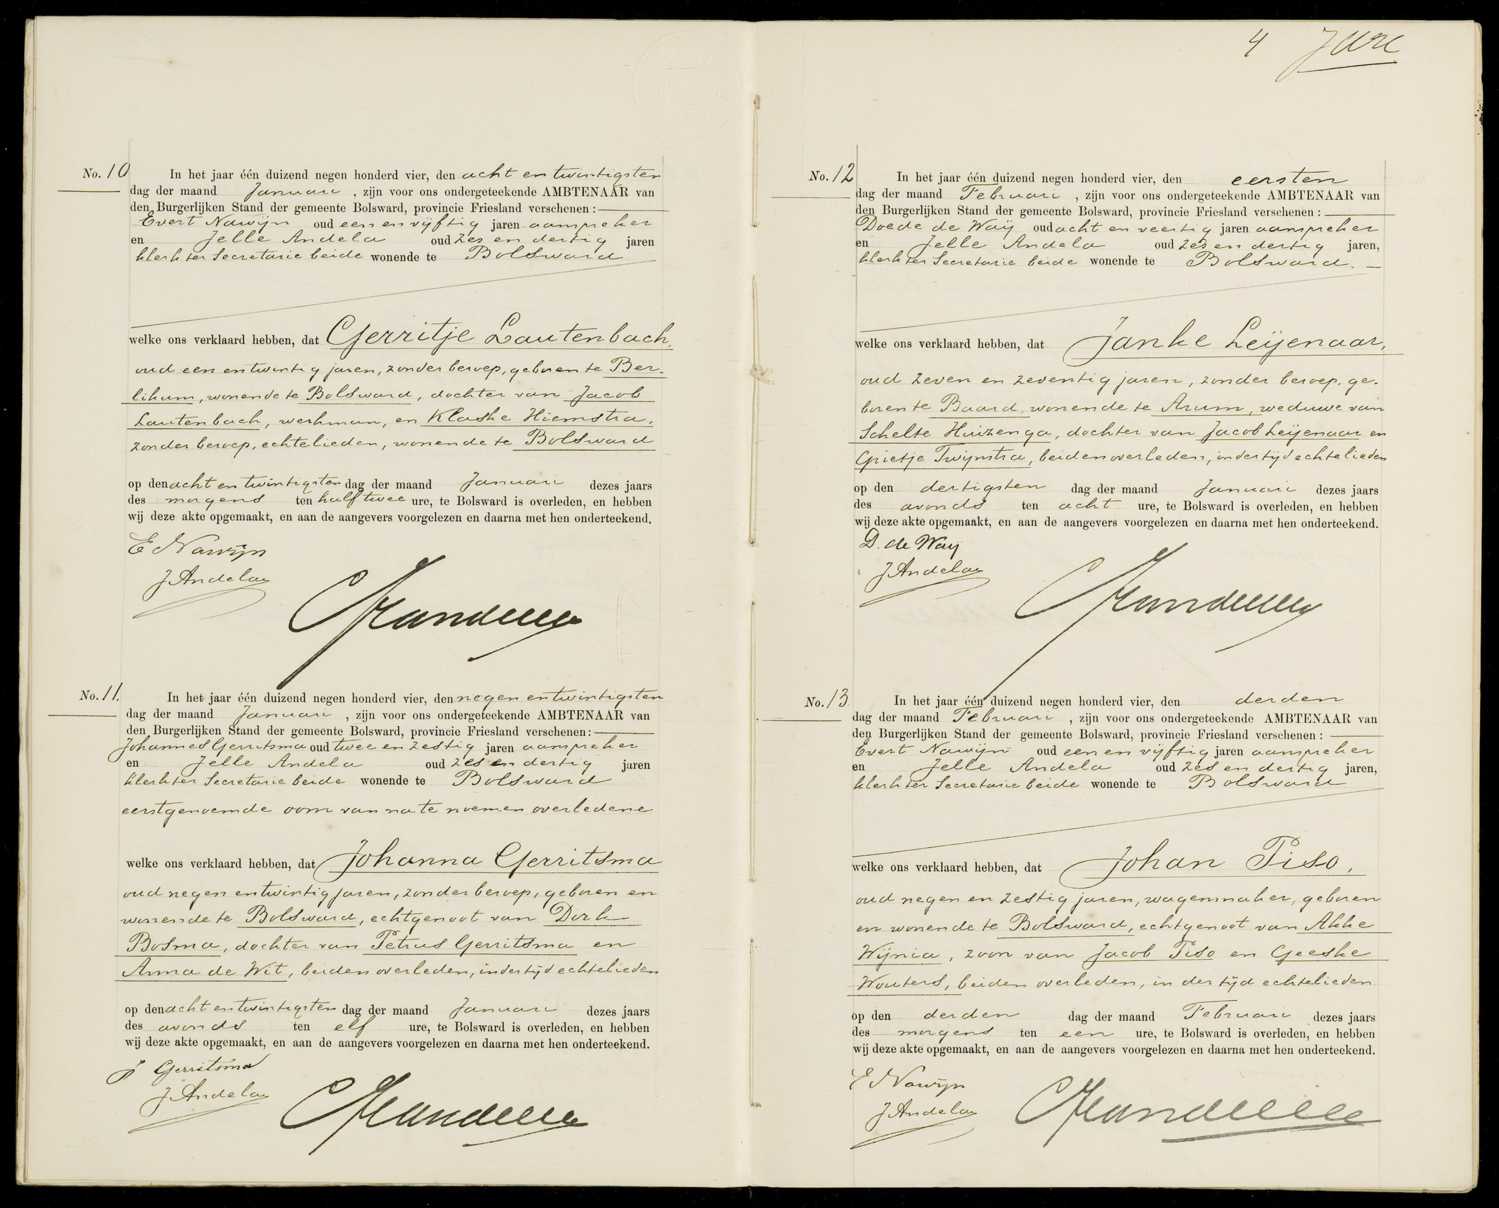 No. 10
In het jaar één duizend negen honderd vier, den acht en twintigsten
dag der maand Januari , zijn voor ons ondergeteekende AMBTENAAR van
den Burgerlijken Stand der gemeente Bolsward, provincie Friesland verschenen:
Evert Nawijn oud een en vijftig jaren aanspreker
en Jelle Andela oud zes en dertig jaren
klerk ter Secretarie beide wonende te Bolsward
welke ons verklaard hebben, dat Gerritje Lautenbach,
oud een en twintig jaren, zonder beroep, geboren te Ber-
likum, wonende te Bolsward, dochter van Jacob
Lautenbach, werkman, en Klaske Hiemstra,
zonder beroep, echtelieden, wonende te Bolsward
op den acht en twintigsten dag der maand Januari dezes jaars
des morgens ten half twee ure, te Bolsward is overleden, en hebben
wij deze akte opgemaakt, en aan de aangevers voorgelezen en daarna met hen onderteekend.
E Nawijn
J Andela
No. 11.
In het jaar één duizend negen honderd vier, den negen en twintigsten
dag der maand Januari , zijn voor ons ondergeteekende AMBTENAAR van
den Burgerlijken Stand der gemeente Bolsward, provincie Friesland verschenen:
Johannes Gerritsma oud twee en zestig jaren aanspreker
en Jelle Andela oud zes en dertig jaren
klerk ter Secretarie beide wonende te Bolsward
eerstgenoemde oom van na te noemen overledene
welke ons verklaard hebben, dat Johanna Gerritsma
oud negen en twintig jaren, zonder beroep, geboren en
wonende te Bolsward, echtgenoot van Dirk
Bosma, dochter van Petrus Gerritsma en
Anna de Wit, beiden overleden, in der tijd echtelieden
op den acht en twintigsten dag der maand Januari dezes jaars
des avonds ten elf ure, te Bolsward is overleden, en hebben
wij deze akte opgemaakt, en aan de aangevers voorgelezen en daarna met hen onderteekend.
J Gerritsma
J Andela
4
No. 12
In het jaar één duizend negen honderd vier, den eersten
dag der maand Februari , zijn voor ons ondergeteekende AMBTENAAR van
den Burgerlijken Stand der gemeente Bolsward, provincie Friesland verschenen:
Doede de Waij oud acht en veertig jaren aanspreker
en Jelle Andela oud zes en dertig jaren,
klerk ter Secretarie beide wonende te Bolsward.
welke ons verklaard hebben, dat Janke Leijenaar,
oud zeven en zeventig jaren, zonder beroep, ge-
boren te Baard, wonende te Arum, weduwe van
Schelte Huizenga, dochter van Jacob Leijenaar en
Grietje Twijnstra, beiden overleden, in der tijd echtelieden
op den dertigsten dag der maand Januari dezes jaars
des avonds ten acht ure, te Bolsward is overleden, en hebben
wij deze akte opgemaakt, en aan de aangevers voorgelezen en daarna met hen onderteekend.
D. de Waij
J Andela
No. 13
In het jaar één duizend negen honderd vier, den derden
dag der maand Februari , zijn voor ons ondergeteekende AMBTENAAR van
den Burgerlijken Stand der gemeente Bolsward, provincie Friesland verschenen:
Evert Nawijn oud een en vijftig jaren aanspreker
en Jelle Andela oud zes en dertig jaren,
klerk ter Secretarie beide wonende te Bolsward
welke ons verklaard hebben, dat Johan Piso,
oud negen en zestig jaren, wagenmaker, geboren
en wonende te Bolsward, echtgenoot van Akke
Wijnia, zoon van Jacob Piso en Geeske
Wouters, beiden overleden, in der tijd echtelieden
op den derden dag der maand Februari dezes jaars
des morgens ten een ure, te Bolsward is overleden, en hebben
wij deze akte opgemaakt, en aan de aangevers voorgelezen en daarna met hen onderteekend.
E Nawijn
J Andela